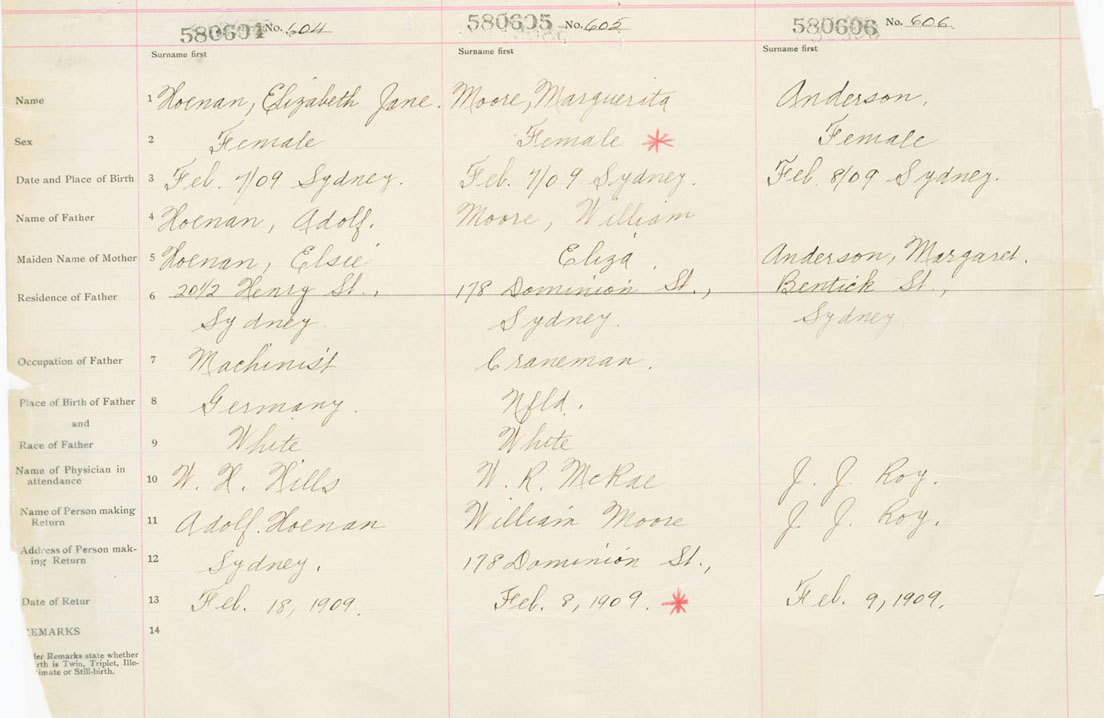 580604 No. 604 580605 No. 605 580606 No. 606
Surname first Surname first Surname first
Name 1 Hoenan, Elizabeth Jane. Moore, Marguerita Anderson.
Sex 2 Female Female Female
Date and Place of Birth 3 Feb. 7/09 Sydney. Feb. 7/09 Sydney. Feb. 8/09 Sydney.
Name of Father 4 Hoenan, Adolf. Moore, William
Maiden Name of Mother 5 Hoenan, Elsie Eliza. Anderson, Margaret.
Residence of Father 6 20 1/2 Henry St., 178 Dominion St., Bentick St.,
Sydney. Sydney. Sydney
Occupation of Father 7 Machinist Craneman.
Place of Birth of Father 8 Germany. Nfld.
and
Race of Father 9 White White
Name of Physician in
attendance 10 W. H. Hills W. R. McRae J. J. Roy.
Name of Person making
Return 11 Adolf. Hoenan William Moore J. J. Roy.
Address of Person mak-
ing Return 12 Sydney. 178 Dominion St.,
Date of Retur 13 Feb. 18, 1909. Feb. 8, 1909. Feb. 9, 1909.
EMARKS 14
der Remarks state whether
rth is Twin, Triplet, Ille-
imate or Still-birth.